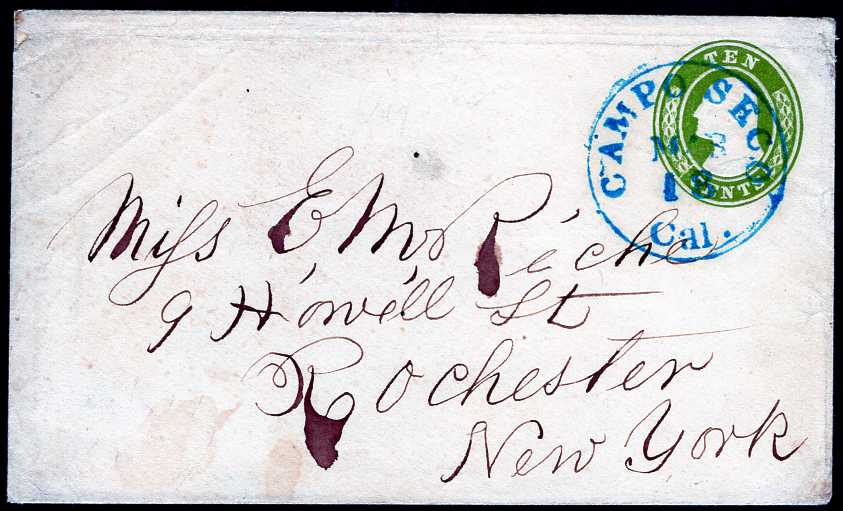 TEN
CENTS
CAMPO SECO
1
Cal.
Miss E M
9 Howell St
Rochester
New York